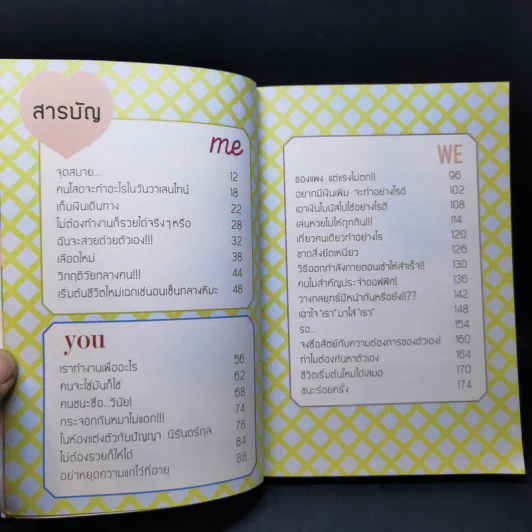 สารบัญ
me
จุดสบาย... 12
คนโสดจะทำอะไรในวันวาเลนไทน์ 18
เก็บเงินเดินทาง 22
ไม่ต้องทำงานก็รวยได้จริงๆหรือ 28
ฉันจะสวยด้วยตัวเอง!!! 32
เลือดใหม่ 38
วิกฤติวัยกลางคน!!! 44
เริ่มต้นชีวิตใหม่เฉกเช่นอนเซ็นกลางหิมะ 48
you
เราทำงานเพื่ออะไร 56
คนจะใช่มันก็ใช่ 62
คนชนะชื่อ..วินัย! 68
กระจอกกันหมาไม่แดก!!! 74
ในห้องแต่งตัวกับปัญญา นิรันดร์กุล 78
ไม่ต้องรวยก็ให้ได้ 84
อย่าหยุดความแก่ไว้ที่อายุ 88
WE
ของแพง แต่แรงไม่ตก!! 96
อยากมีเงินเพิ่ม จะทำอย่างไรดี 102
เอาเงินโบนัสไปใช้อย่างไรดี 108
เล่นหวยไม่ให้ถูกกิน!!! 114
เที่ยวคนเดียวทำอย่างไร 120
ขาดสิ่งยึดเหนี่ยว 126
วิธีออกกำลังกายตอนเช้าให้สำเร็จ!! 130
คนไม่สำคัญประจำออฟฟิศ! 136
วางกลยุทธ์มีหน้ากันหรือยัง!!?? 142
เอาใจ"เรา"มาใส่"เรา" 148
รอ... 154
จงซื่อสัตย์กับความต้องการของตัวเอง! 160
ทำไมต้องค้นหาตัวเอง 164
ชีวิตเริ่มต้นใหม่ได้เสมอ 170
ชนะร้อยครั้ง 174